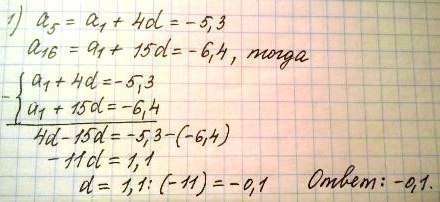 1) a₅ = a₁ + 4d = -5,3
a₁₆ = a₁ + 15d = -6,4, тогда
- { a₁ + 4d = -5,3
a₁ + 15d = -6,4
4d - 15d = -5,3 - (-6,4)
-11d = 1,1
d = 1,1 : (-11) = -0,1 Ответ: -0,1.